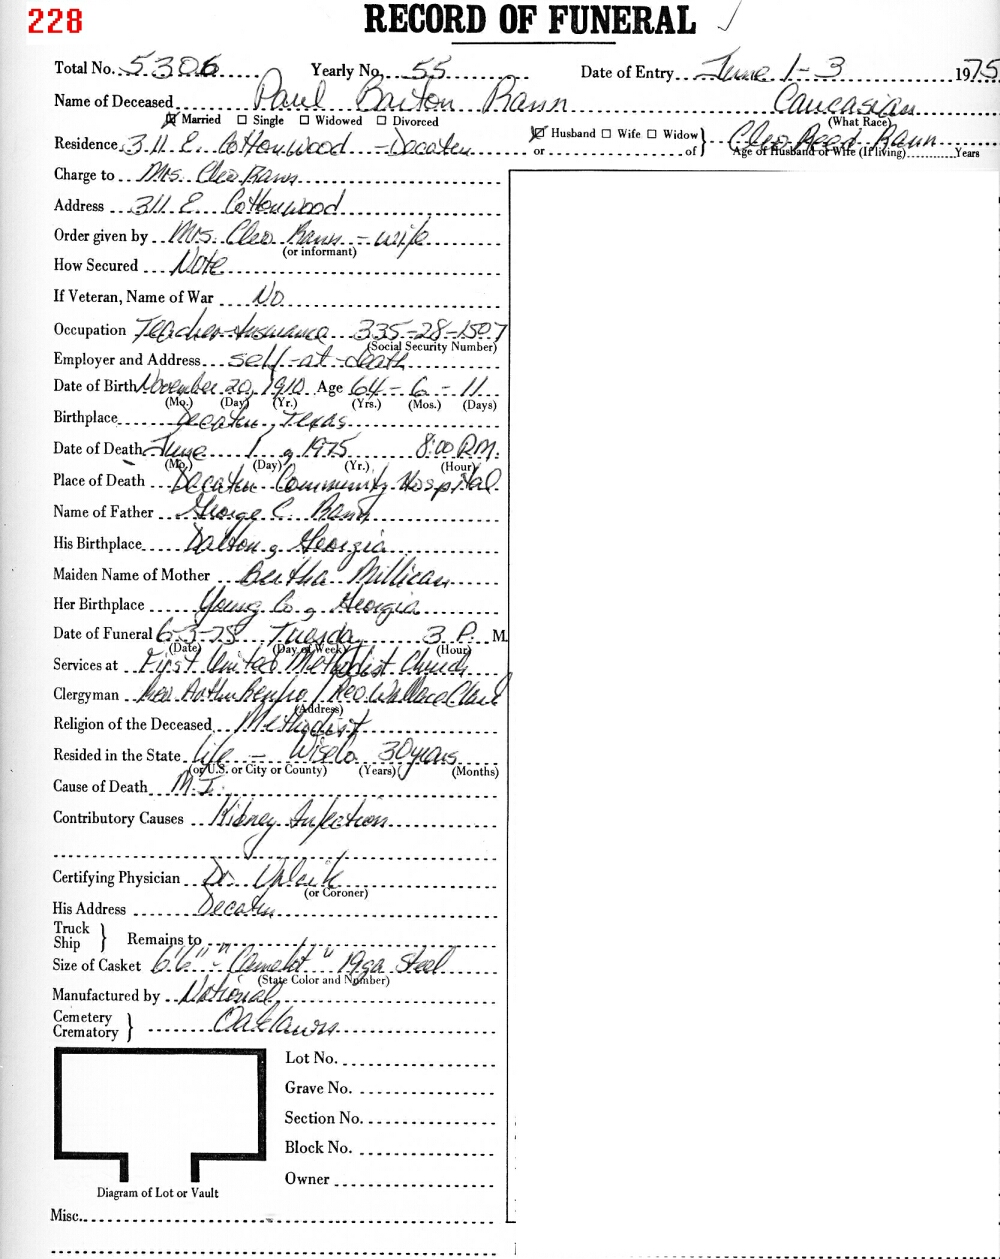 228
RECORD OF FUNERAL ✓
Total No. 5306 Yearly No. 55 Date of Entry June 1-3 1975
Name of Deceased Paul Barton Rann Caucasian
☒ Married ☐ Single ☐ Widowed ☐ Divorced (What Race)
Residence 311 E. Cottonwood - Decatur ☑ Husband ☐ Wife ☐ Widow or of } Cleo Reed Rann
Age of Husband or Wife (If living) Years
Charge to Mrs. Cleo Rann
Address 311 E. Cottonwood
Order given by Mrs. Cleo Rann - wife
(or informant)
How Secured Note
If Veteran, Name of War No
Occupation Teacher-Insurance 335-28-1507
(Social Security Number)
Employer and Address self-at-death
Date of Birth November 20, 1910 Age 64 - 6 - 11
(Mo.) (Day) (Yr.) (Yrs.) (Mos.) (Days)
Birthplace Decatur, Texas
Date of Death June 1, 1975 8:00 P.M.
(Mo.) (Day) (Yr.) (Hour)
Place of Death Decatur Community Hospital
Name of Father George C. Rann
His Birthplace Dalton, Georgia
Maiden Name of Mother Bertha Millican
Her Birthplace Young Co., Georgia
Date of Funeral 6-3-75 Tuesday 3 P. M.
(Date) (Day of Week) (Hour)
Services at First United Methodist Church
Clergyman Rev. Arthur Renfro / Rev. Wallace Clark
(Address)
Religion of the Deceased Methodist
Resided in the State Life - Wise Co 30 years
(or U.S. or City or County) (Years) (Months)
Cause of Death M.I.
Contributory Causes Kidney Infection
Certifying Physician Dr.
(or Coroner)
His Address Decatur
Truck
Ship } Remains to
Size of Casket 6'6" - "Camelot" 19ga Steel
(State Color and Number)
Manufactured by National
Cemetery
Crematory } Oaklawn
Lot No.
Grave No.
Section No.
Block No.
Owner
Diagram of Lot or Vault
Misc.